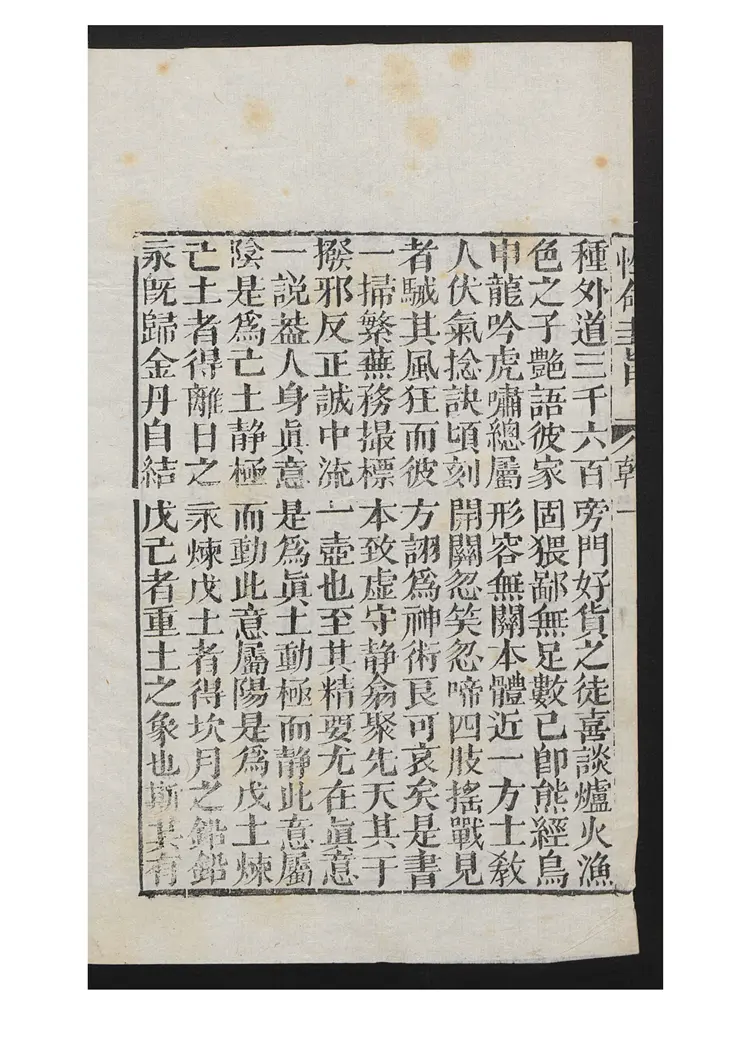 性命圭旨 乾一
種外道三千六百旁門好貨之徒喜談爐火漁
色之子艷語彼家固猥鄙無足數已卽熊經鳥
申龍吟虎嘯總屬形容無關本體近一方士敎
人伏氣捻訣頃刻開關忽笑忽啼四肢搖戰見
者駴其風狂而彼方詡爲神術良可哀矣是書
一掃繁蕪務撮標本致虛守静翕聚先天其于
撥邪反正誠中流一壺也至其精要尤在眞意
一說葢人身眞意是爲眞土動極而静此意屬
陰是爲己土静極而動此意屬陽是爲戊土煉
己土者得離日之汞煉戊土者得坎月之鉛鉛
汞旣歸金丹自結戊己者重土之象也斯其有